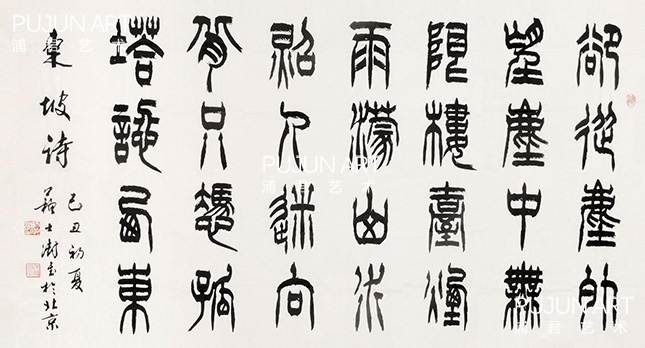 卻從塵外
望塵中無
限樓臺煙
雨濛山水
照人迷向
背只憑孤
塔認西東
東坡詩
己丑初夏
蘇士澍書於北京
PUJUN ART
浦君艺术
PUJUN ART
浦君艺术
PUJUN ART
浦君艺术